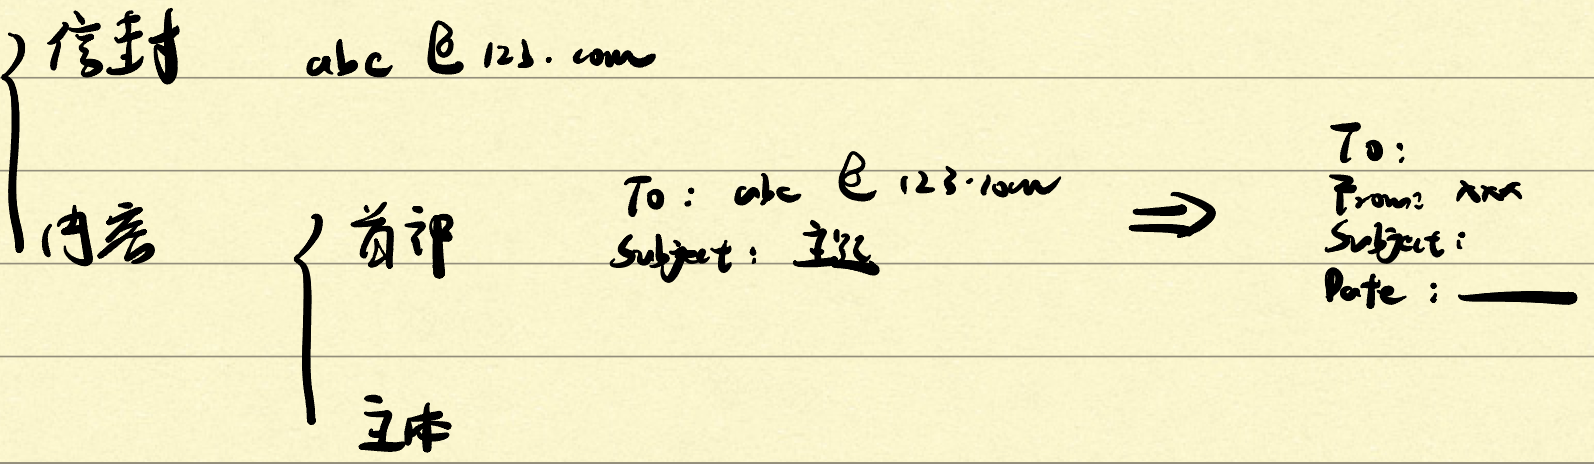 信封 abc @ 123.com
内容
首部
To: abc @ 123.com
Subject: 主题
⇒
To:
From: xxx
Subject:
Date: ——
主体